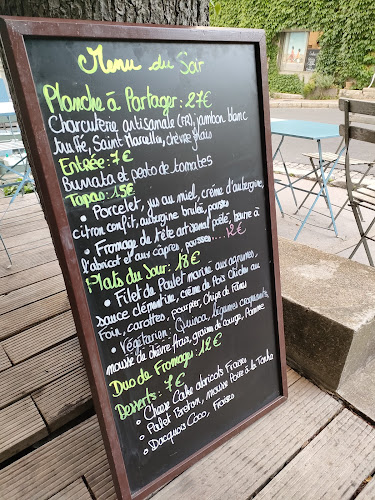 Menu du Soir
Planche à Partager : 27€
Charcuterie artisanale (FR), jambon blanc
truffé, Saint Marcellin, chèvre frais
Entrée : 7€
Burrata et pesto de tomates
Tapas : 15€
• Porcelet, jus au miel, crème d'aubergine,
citron confit, aubergine brulée, pousses
• Fromage de tête artisanal poêlé, beurre à
l'abricot et aux câpres, pousses.... 12€
Plats du Soir : 18€
• Filet de Poulet mariné aux agrumes,
sauce clémentine, crème de Pois chiche au
Foin, carottes, pourpier, Chips de Fânes
• Végétarien : Quinoa, légumes croquants,
mousse de chèvre frais, graines de courge, Pomme
Duo de Fromages : 12€
Desserts : 7€
• Cheese Cake abricots Fraises
• Palet Breton, mousse Poire à la Tonka
• Dacquois Coco, Fraises